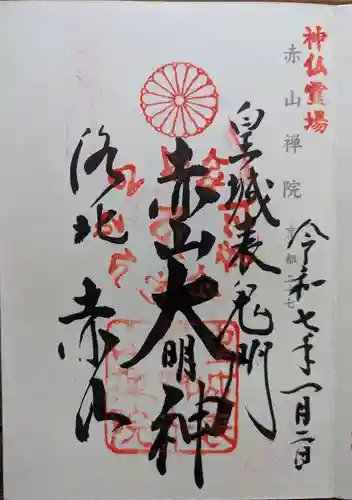 神仏霊場
赤山禅院
令和七年一月二日
皇城表鬼門
赤山大明神
洛北赤山